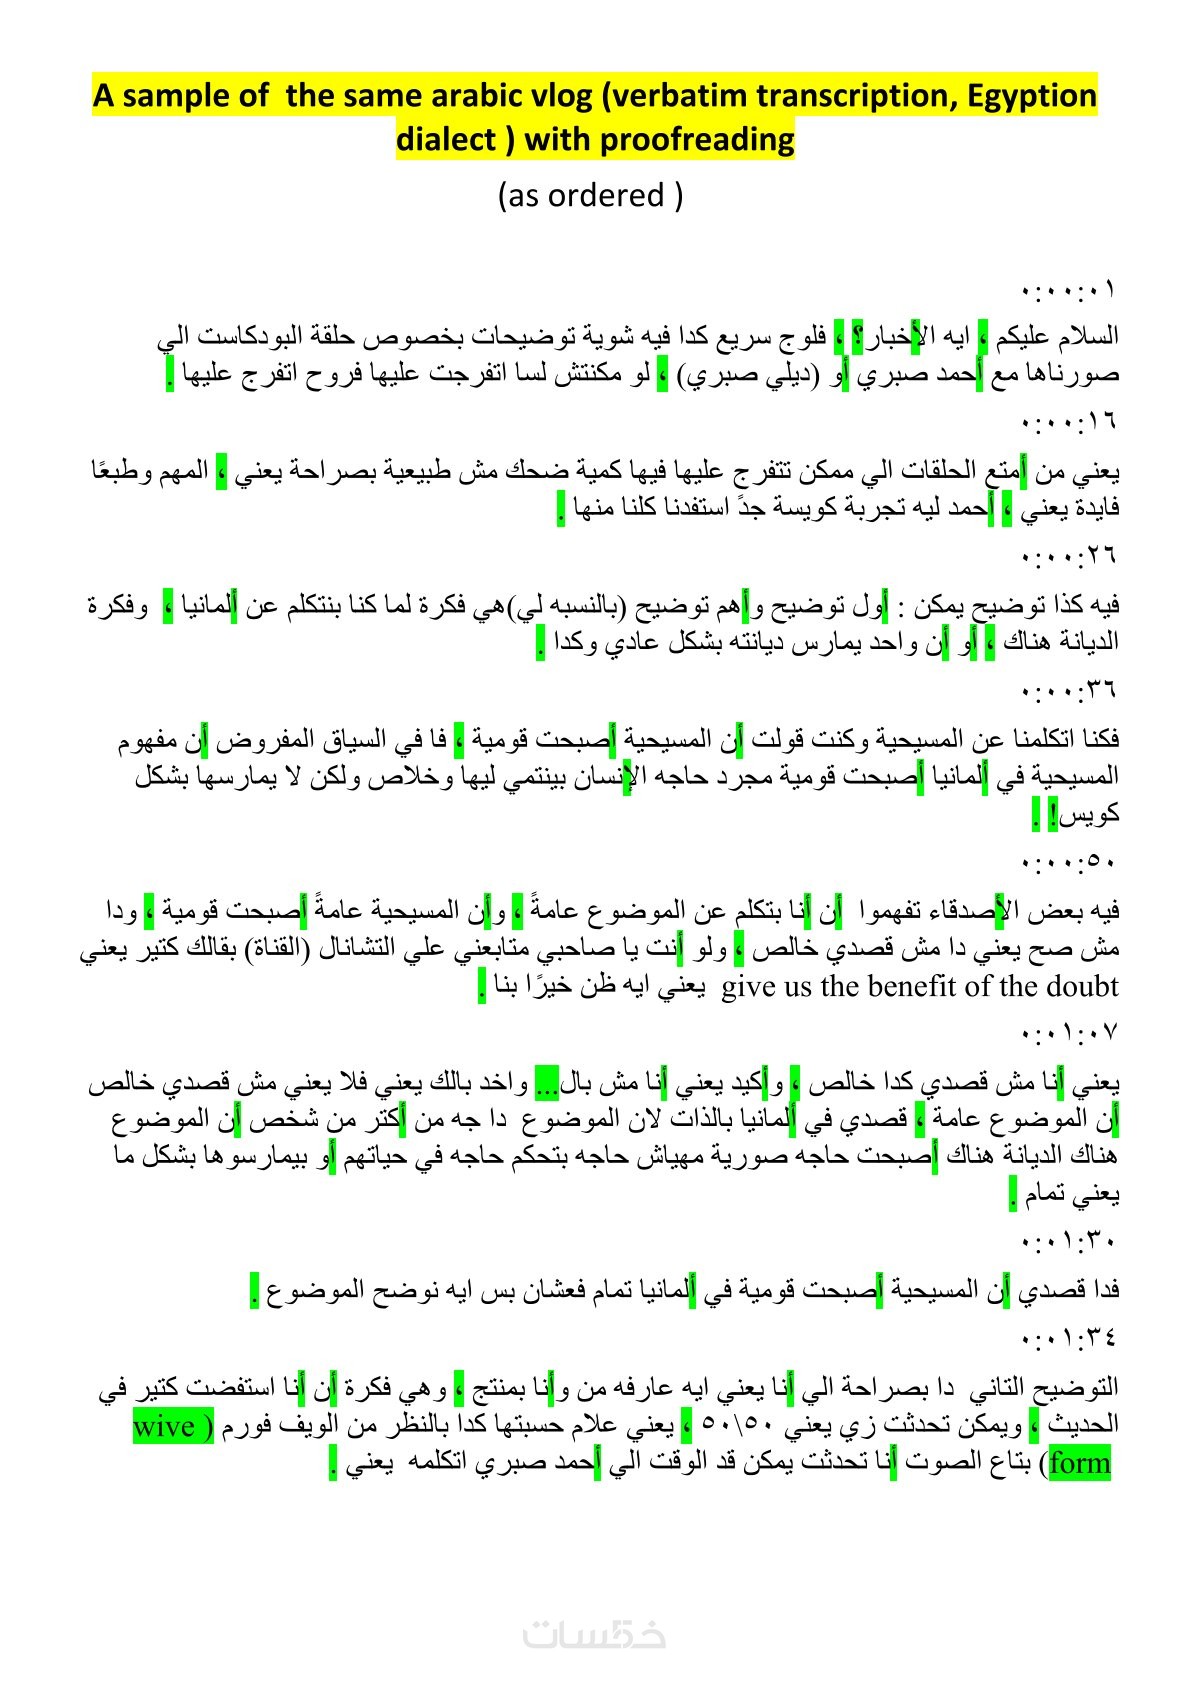 A sample of the same arabic vlog (verbatim transcription, Egyption
dialect ) with proofreading
(as ordered )
٠:٠٠:٠١
السلام عليكم ، ايه الأخبار؟ ، فلوج سريع كدا فيه شوية توضيحات بخصوص حلقة البودكاست الي
صورناها مع أحمد صبري أو (ديلي صبري) ، لو مكنتش لسا اتفرجت عليها فروح اتفرج عليها .
٠:٠٠:١٦
يعني من أمتع الحلقات الي ممكن تتفرج عليها فيها كمية ضحك مش طبيعية بصراحة يعني ، المهم وطبعًا
فايدة يعني ، أحمد ليه تجربة كويسة جدً استفدنا كلنا منها .
٠:٠٠:٢٦
فيه كذا توضيح يمكن : أول توضيح وأهم توضيح (بالنسبه لي)هي فكرة لما كنا بنتكلم عن ألمانيا ، وفكرة
الديانة هناك ، أو أن واحد يمارس ديانته بشكل عادي وكدا .
٠:٠٠:٣٦
فكنا اتكلمنا عن المسيحية وكنت قولت أن المسيحية أصبحت قومية ، فا في السياق المفروض أن مفهوم
المسيحية في ألمانيا أصبحت قومية مجرد حاجه الإنسان بينتمي ليها وخلاص ولكن لا يمارسها بشكل
كويس! .
٠:٠٠:٥٠
فيه بعض الأصدقاء تفهموا أن أنا بتكلم عن الموضوع عامةً ، وأن المسيحية عامةً أصبحت قومية ، ودا
مش صح يعني دا مش قصدي خالص ، ولو أنت يا صاحبي متابعني علي التشانال (القناة) بقالك كتير يعني
give us the benefit of the doubt يعني ايه ظن خيرًا بنا .
٠:٠١:٠٧
يعني أنا مش قصدي كدا خالص ، وأكيد يعني أنا مش بال... واخد بالك يعني فلا يعني مش قصدي خالص
أن الموضوع عامة ، قصدي في ألمانيا بالذات لان الموضوع دا جه من أكتر من شخص أن الموضوع
هناك الديانة هناك أصبحت حاجه صورية مهياش حاجه بتحكم حاجه في حياتهم أو بيمارسوها بشكل ما
يعني تمام .
٠:٠١:٣٠
فدا قصدي أن المسيحية أصبحت قومية في ألمانيا تمام فعشان بس ايه نوضح الموضوع .
٠:٠١:٣٤
التوضيح التاني دا بصراحة الي أنا يعني ايه عارفه من وأنا بمنتج ، وهي فكرة أن أنا استفضت كتير في
الحديث ، ويمكن تحدثت زي يعني ٥٠\٥٠ ، يعني علام حسبتها كدا بالنظر من الويف فورم ( wive
form) بتاع الصوت أنا تحدثت يمكن قد الوقت الي أحمد صبري اتكلمه يعني .
خمسات